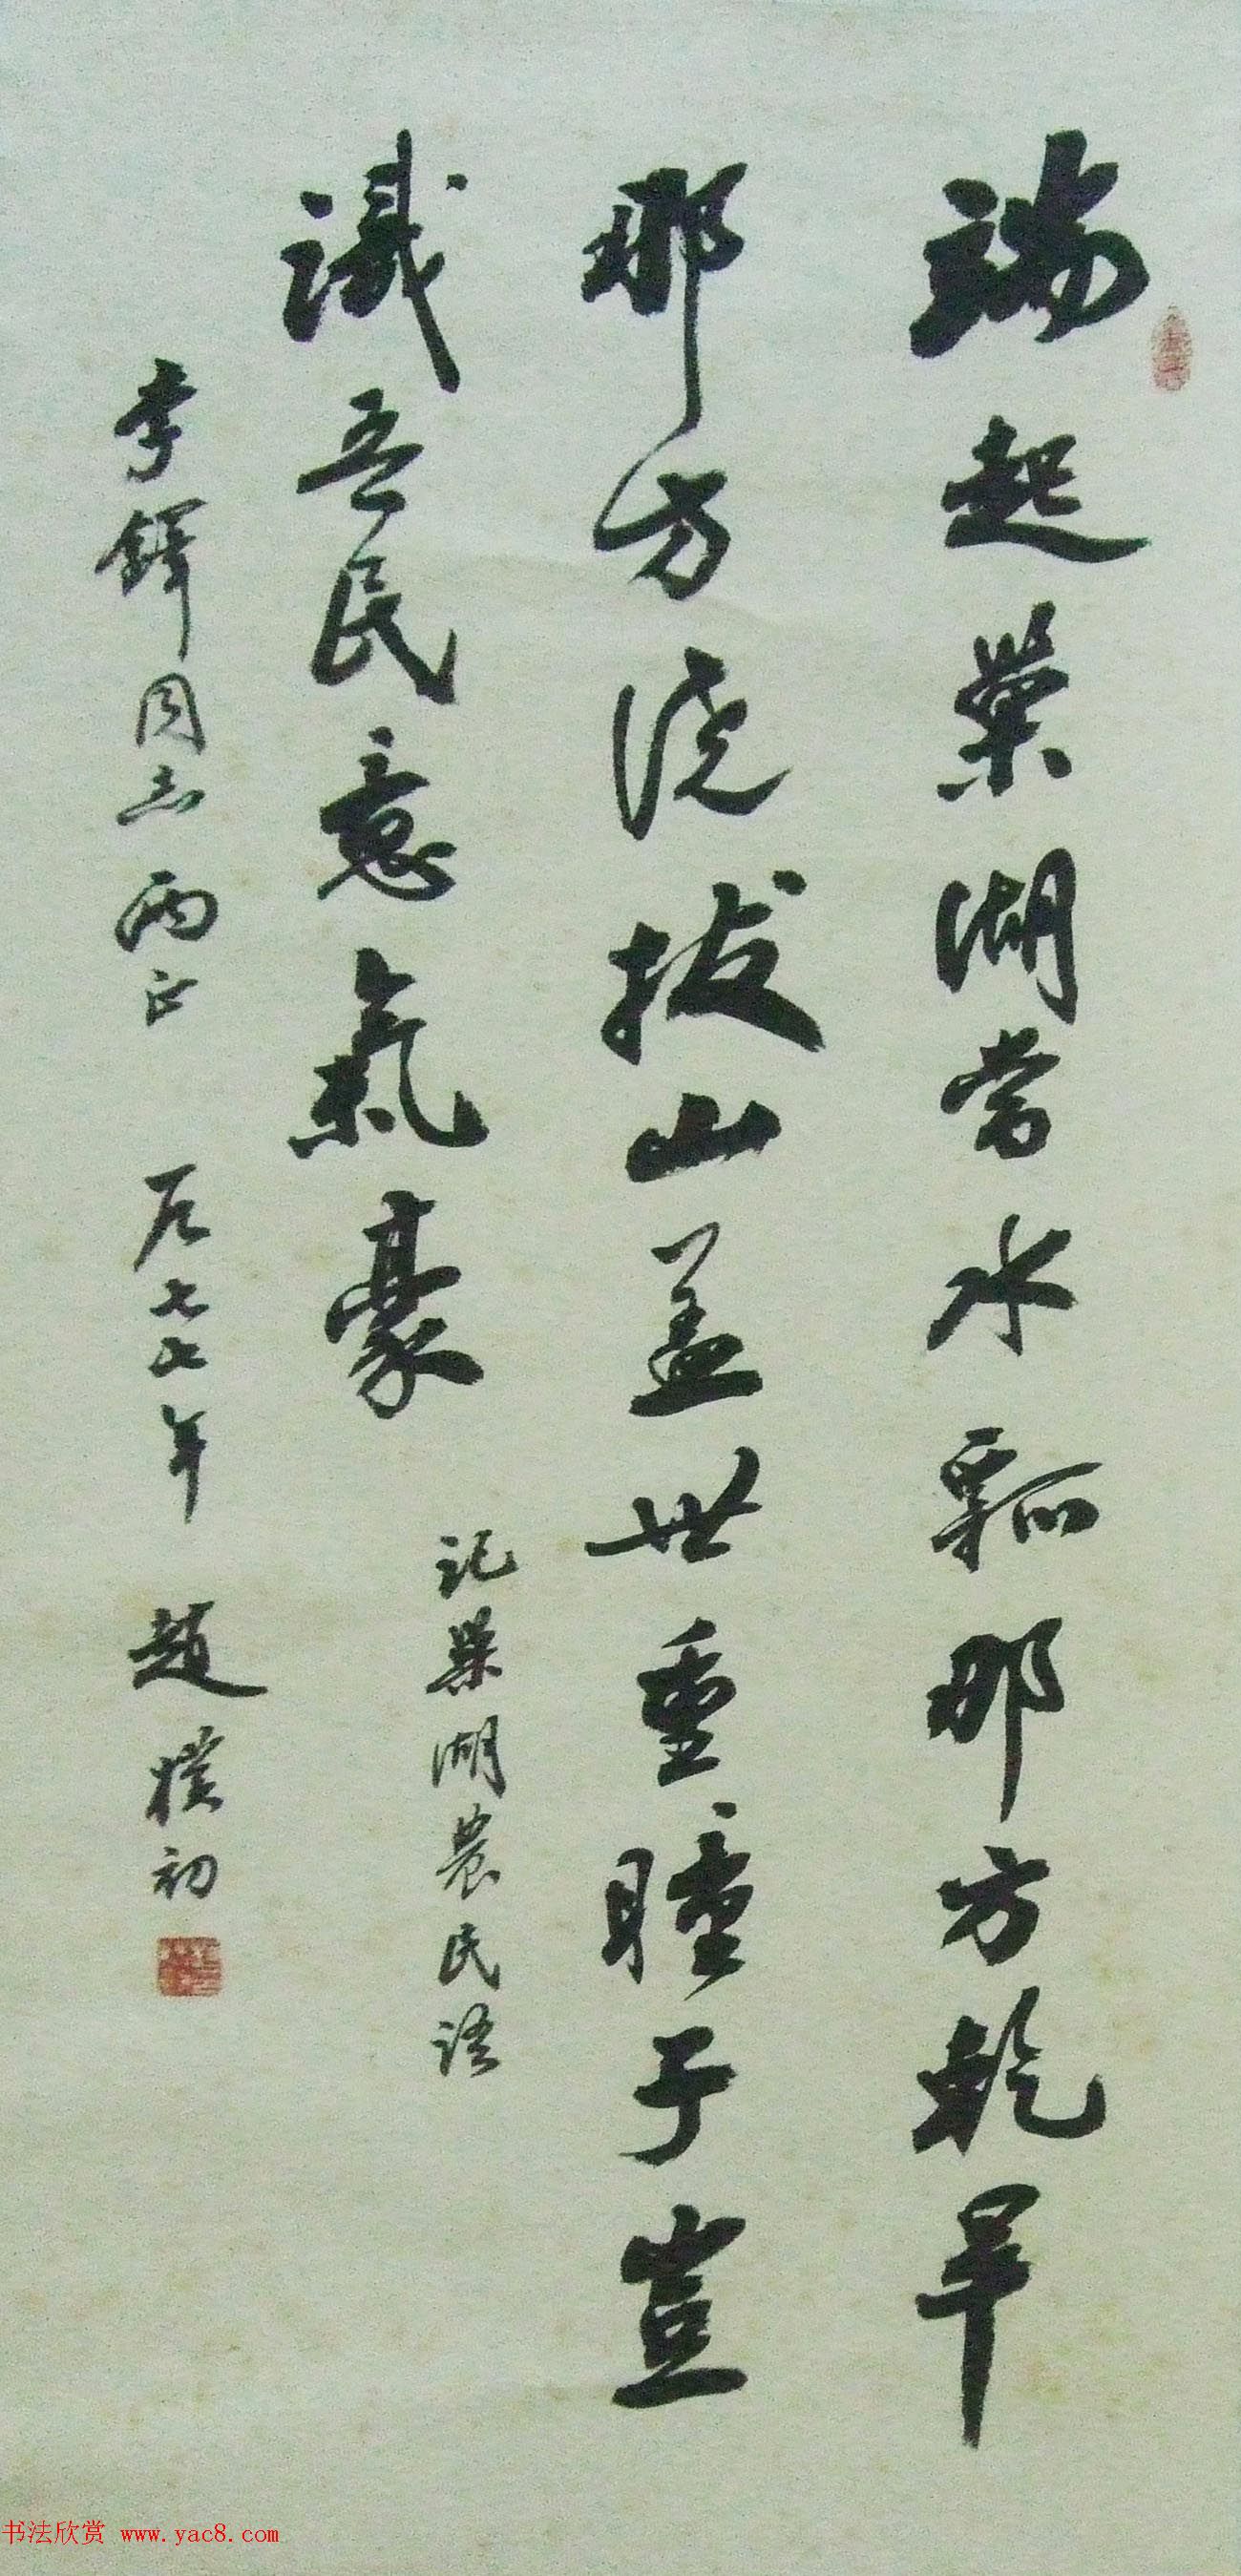 端起巢湖當水瓢那方乾旱
那方澆拔山蓋世重瞳子豈
識吾民意氣豪
記巢湖農民語
李鐸同志兩正 一九七七年 趙樸初
书法欣赏 www.yac8.com